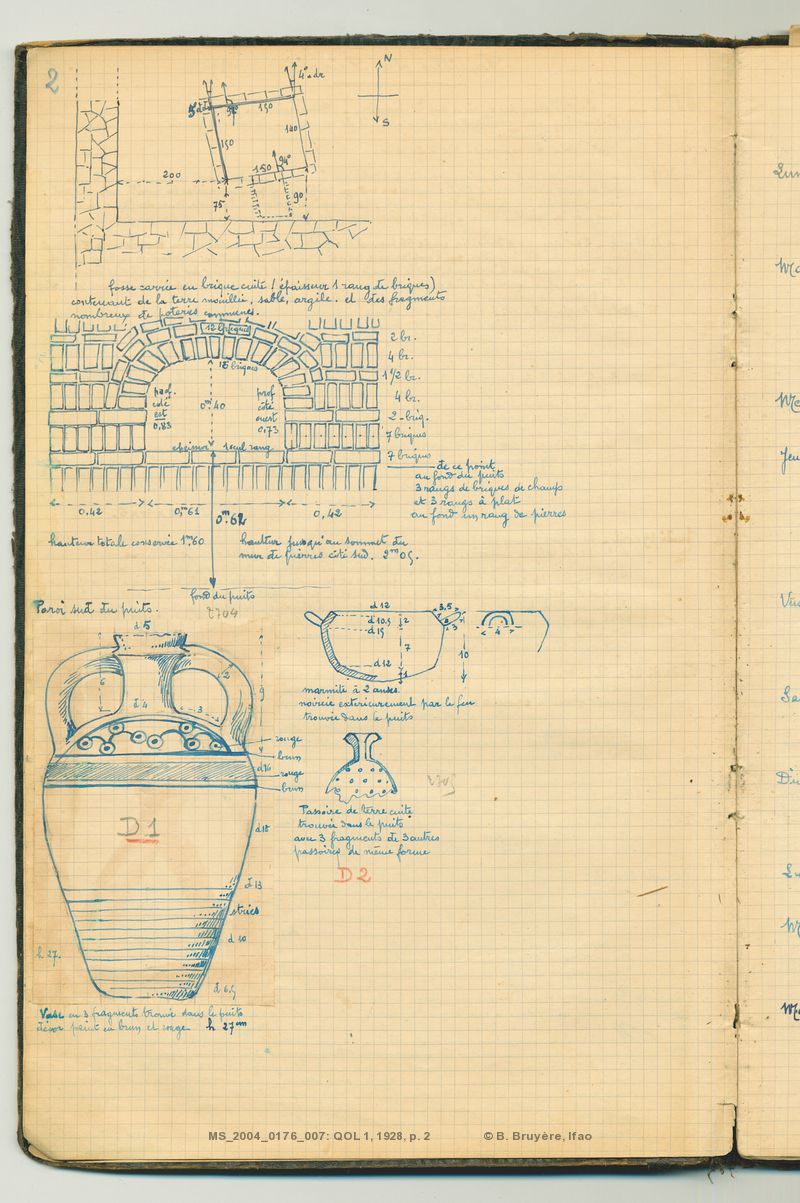 2
N
S
4° dr
150
140
150
150
94°
200
75
90
fosse carrée en brique cuite (épaisseur 1 rang de briques)
contenant de la terre mouillée, sable, argile. et des fragments
nombreux de poteries communes.
12 briques
15 briques
2 br.
4 br.
1 1/2 br.
4 br.
2 brig.
7 briques
7 briques
prof.
côté
est
0,83
0m.40
prof
côté
ouest
0,73
épaisseur 1 seul rang
de ce point
au fond du puits
3 rangs de briques de champ
et 3 rangs à plat
au fond un rang de pierres
0,42
0m61
0,42
0m.62
hauteur totale conservée 1m60
hauteur jusqu'au sommet du
mur de pierres côté sud. 2m05.
fond du puits
Paroi sud du puits.
2704
d 15
6
d 4
3
2
9
rouge
brun
d 16
rouge
brun
D1
d 18
d 13
stries
d 10
h 27.
d 6.5
Vase en 3 fragments trouvé dans le puits
décor peint en brun et rouge h 27cm
d 12
d 10.5
2
d 15
7
d 12
1
3,5
3
10
4
marmite à 2 anses.
noircie extérieurement par le feu
trouvée dans le puits
2705
Passoire de terre cuite
trouvée dans le puits
avec 3 fragments de 3 autres
passoires de même forme
D2
MS_2004_0176_007: QOL 1, 1928, p. 2 © B. Bruyère, Ifao